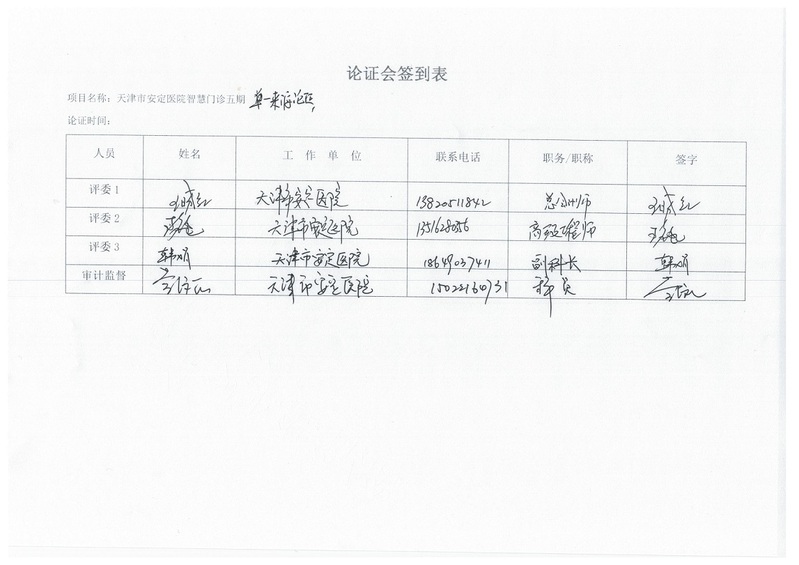 论证会签到表
项目名称：天津市安定医院智慧门诊五期 单一来源论证
论证时间：
人员 姓名 工作单位 联系电话 职务/职称 签字
评委1 天津市安定医院 13820511842 总会计师
评委2 天津市安定医院 高级工程师
评委3 韩娟 天津市安定医院 18649037411 副科长 韩娟
审计监督 天津市安定医院 15022160931 科员